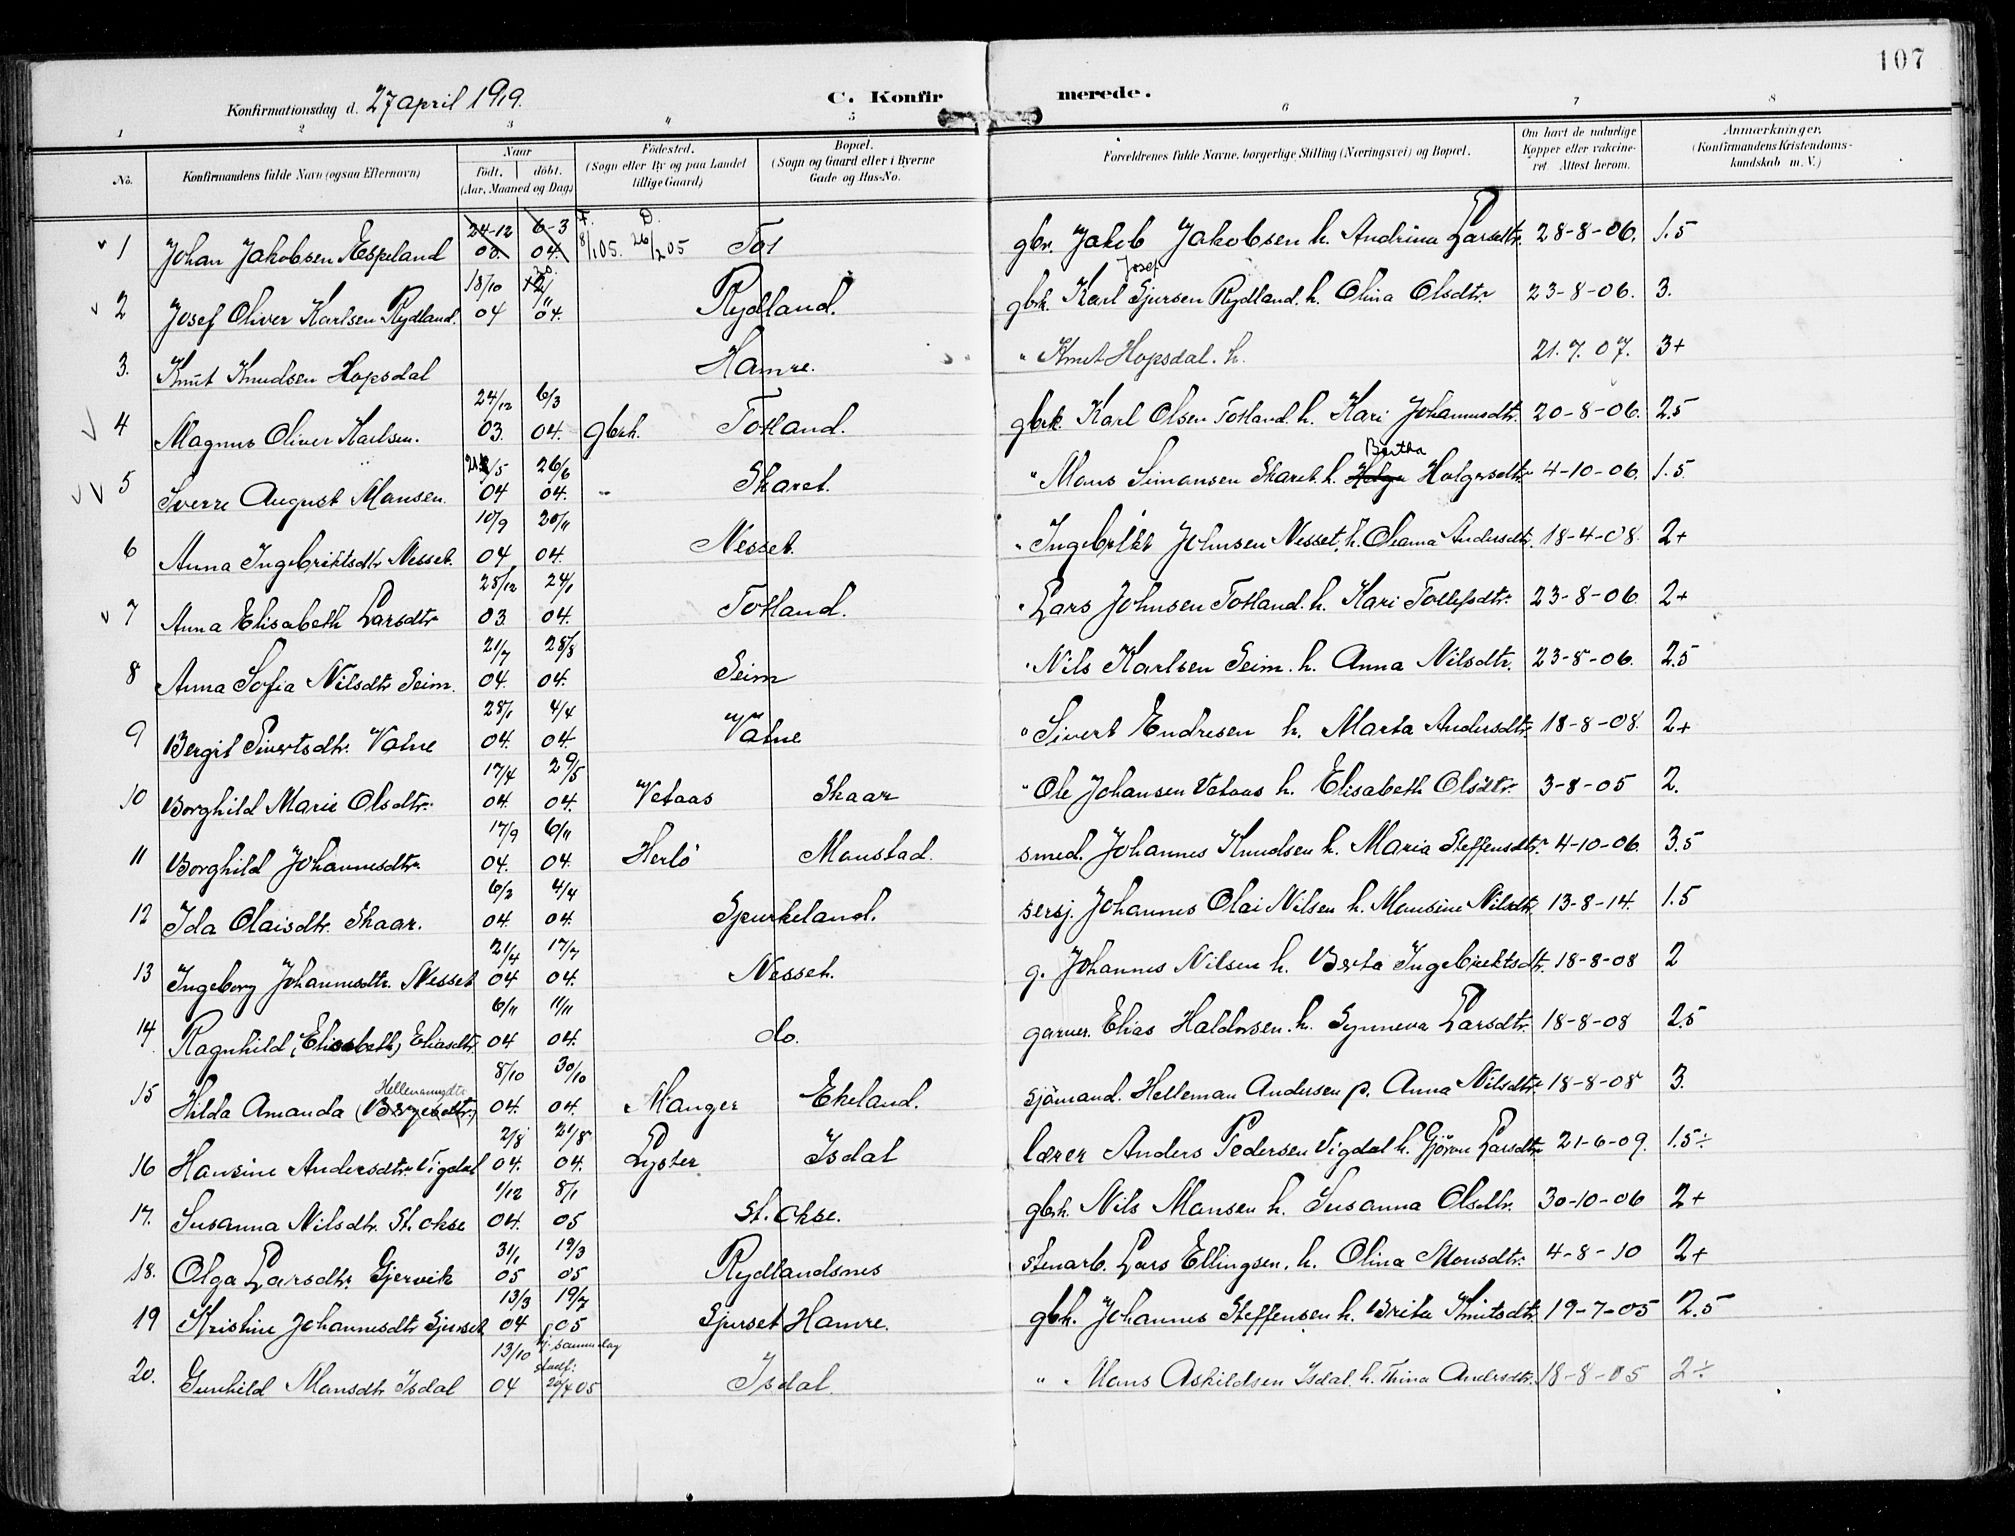 107
Konfirmationsdag d. 27 april 1919.
C. Konfirmerede.
1 2 3 4 5 6 7 8
No.
Konfirmandens fulde Navn (ogsaa Efternavn)
Naar
födt. döbt.
(Aar, Maaned og Dag)
Födested.
(Sogn eller By og paa Landet tillige Gaard)
Bopæl.
(Sogn og Gaard eller i Byerne Gade og Hus-No.
Forældrenes fulde Navne, borgerlige Stilling (Næringsvei) og Bopæl.
Om havt de naturlige Kopper eller vakcineret. Attest herom.
Anmærkninger.
(Konfirmandens Kristendomskundskab m. V.)
1 Johan Jakobsen Espeland 24-12 03. 6-3 04. F. 8/1 05. D. 26/2 05 Tot gbr. Jakob Jakobsen h. Andrina Larsdtr. 28-8-06. 1.5
2 Josef Oliver Karlsen Rydland. 18/10 04 04. Rydland. gbrk. Karl Josef Sjursen Rydland. h. Olina Olsdtr 23-8-06. 3.
3. Knut Knudsen Hopsdal Hamre. " Knut Hopsdal. h. 21. 7. 07. 3+
4 Magnus Oliver Karlsen. 24/12 03. 6/3 04. gbrh. Totland. gbrk. Karl Olsen Totland. h. Kari Johannesdtr. 20-8-06. 2.5
5 Sverre August Monsen. 04 26/6 04. " Skaret. " Mons Simonsen Skaret. h. Bertha Holgersdtr 4-10-06. 1.5.
6 Anna Ingebriktsdtr Nesset. 10/9 04 20/11 04. Nesset. " Ingebrikt Johnsen Nesset, h. Oleana Andersdtr. 18-4-08. 2+
7 Anna Elisabeth Larsdtr 28/12 03 24/1 04. Totland. " Lars Johnsen Totland. h. Kari Tollefsdtr. 23-8-06. 2+
8 Anna Sofia Nilsdtr Seim. 21/7 04. 28/8 04. Seim " Nils Karlsen Seim. h. Anna Nilsdtr. 23-8-06. 2.5
9 Bergit Sivertsdtr. Vatne 28/1 04. 4/4 04. Vatne " Sivert Endresen h. Marta Andersdtr. 18-8-08. 2+
10 Borghild Marie Olsdtr. 17/4 04. 29/5 04. Vetaas Skaar " Ole Johansen Vetaas h. Elisabeth Olsdtr. 3-8-05 2.
11 Borghild Johannesdtr. 17/9 04. 6/11 04. Herlö Monstad. smed. Johannes Knudsen h. Maria Steffensdtr. 4-10-06. 3.5
12 Ida Olaisdtr. Skaar. 6/2 04. 4/4 04. Spurkeland. sersj. Johannes Olai Nilsen h. Monsine Nilsdtr. 13-8-14. 1.5
13 Ingeborg Johannesdtr. Nesset 21/4 04 17/7 04. Nesset. g. Johannes Nilsen h. Berta Ingebriktsdtr. 18-8-08 2
14 Ragnhild (Elisabeth) Eliasdtr. 6/11 04 11/11 04. do. garver. Elias Haldorsen. h. Synneva Larsdtr. 18-8-08 2.5
15 Hilda Amanda (Hellemansdtr 8/10 04. 30/10 04. Manger Ekeland. sjömand. Helleman Andersen p. Anna Nilsdtr. 18-8-08 3.
16 Hansine Andersdtr. Vigdal 2/8 04. 21/8 04. Lyster Isdal lærer Anders Pedersen Vigdal h. Gjörou Larsdtr 21-6-09. 1.5÷
17. Susanna Nilsdtr. St. okse 1/12 04. 8/1 05 St. Okse. gbrh. Nils Monsen h. Susanna Olsdtr. 30-10-06 2+
18. Olga Larsdtr. Gjervik 31/1 05 19/3 05 Rydlandsnes stenarb. Lars Ellingsen. h. Olina Monsdtr. 4-8-10 2+
19 Kristine Johannesdtr Sjurset 13/3 04 19/7 05 Sjurset Hamre. gbh. Johannes Steffensen h. Brita Knutsdtr. 19-7-05 2.5
20. Gunhild Monsdtr Isdal 13/10 04 hj. samme dag stadf: 26/4 05 Isdal. " " Mons Askildsen Isdal. h. Trina Andrsdtr. 18-8-05 2÷